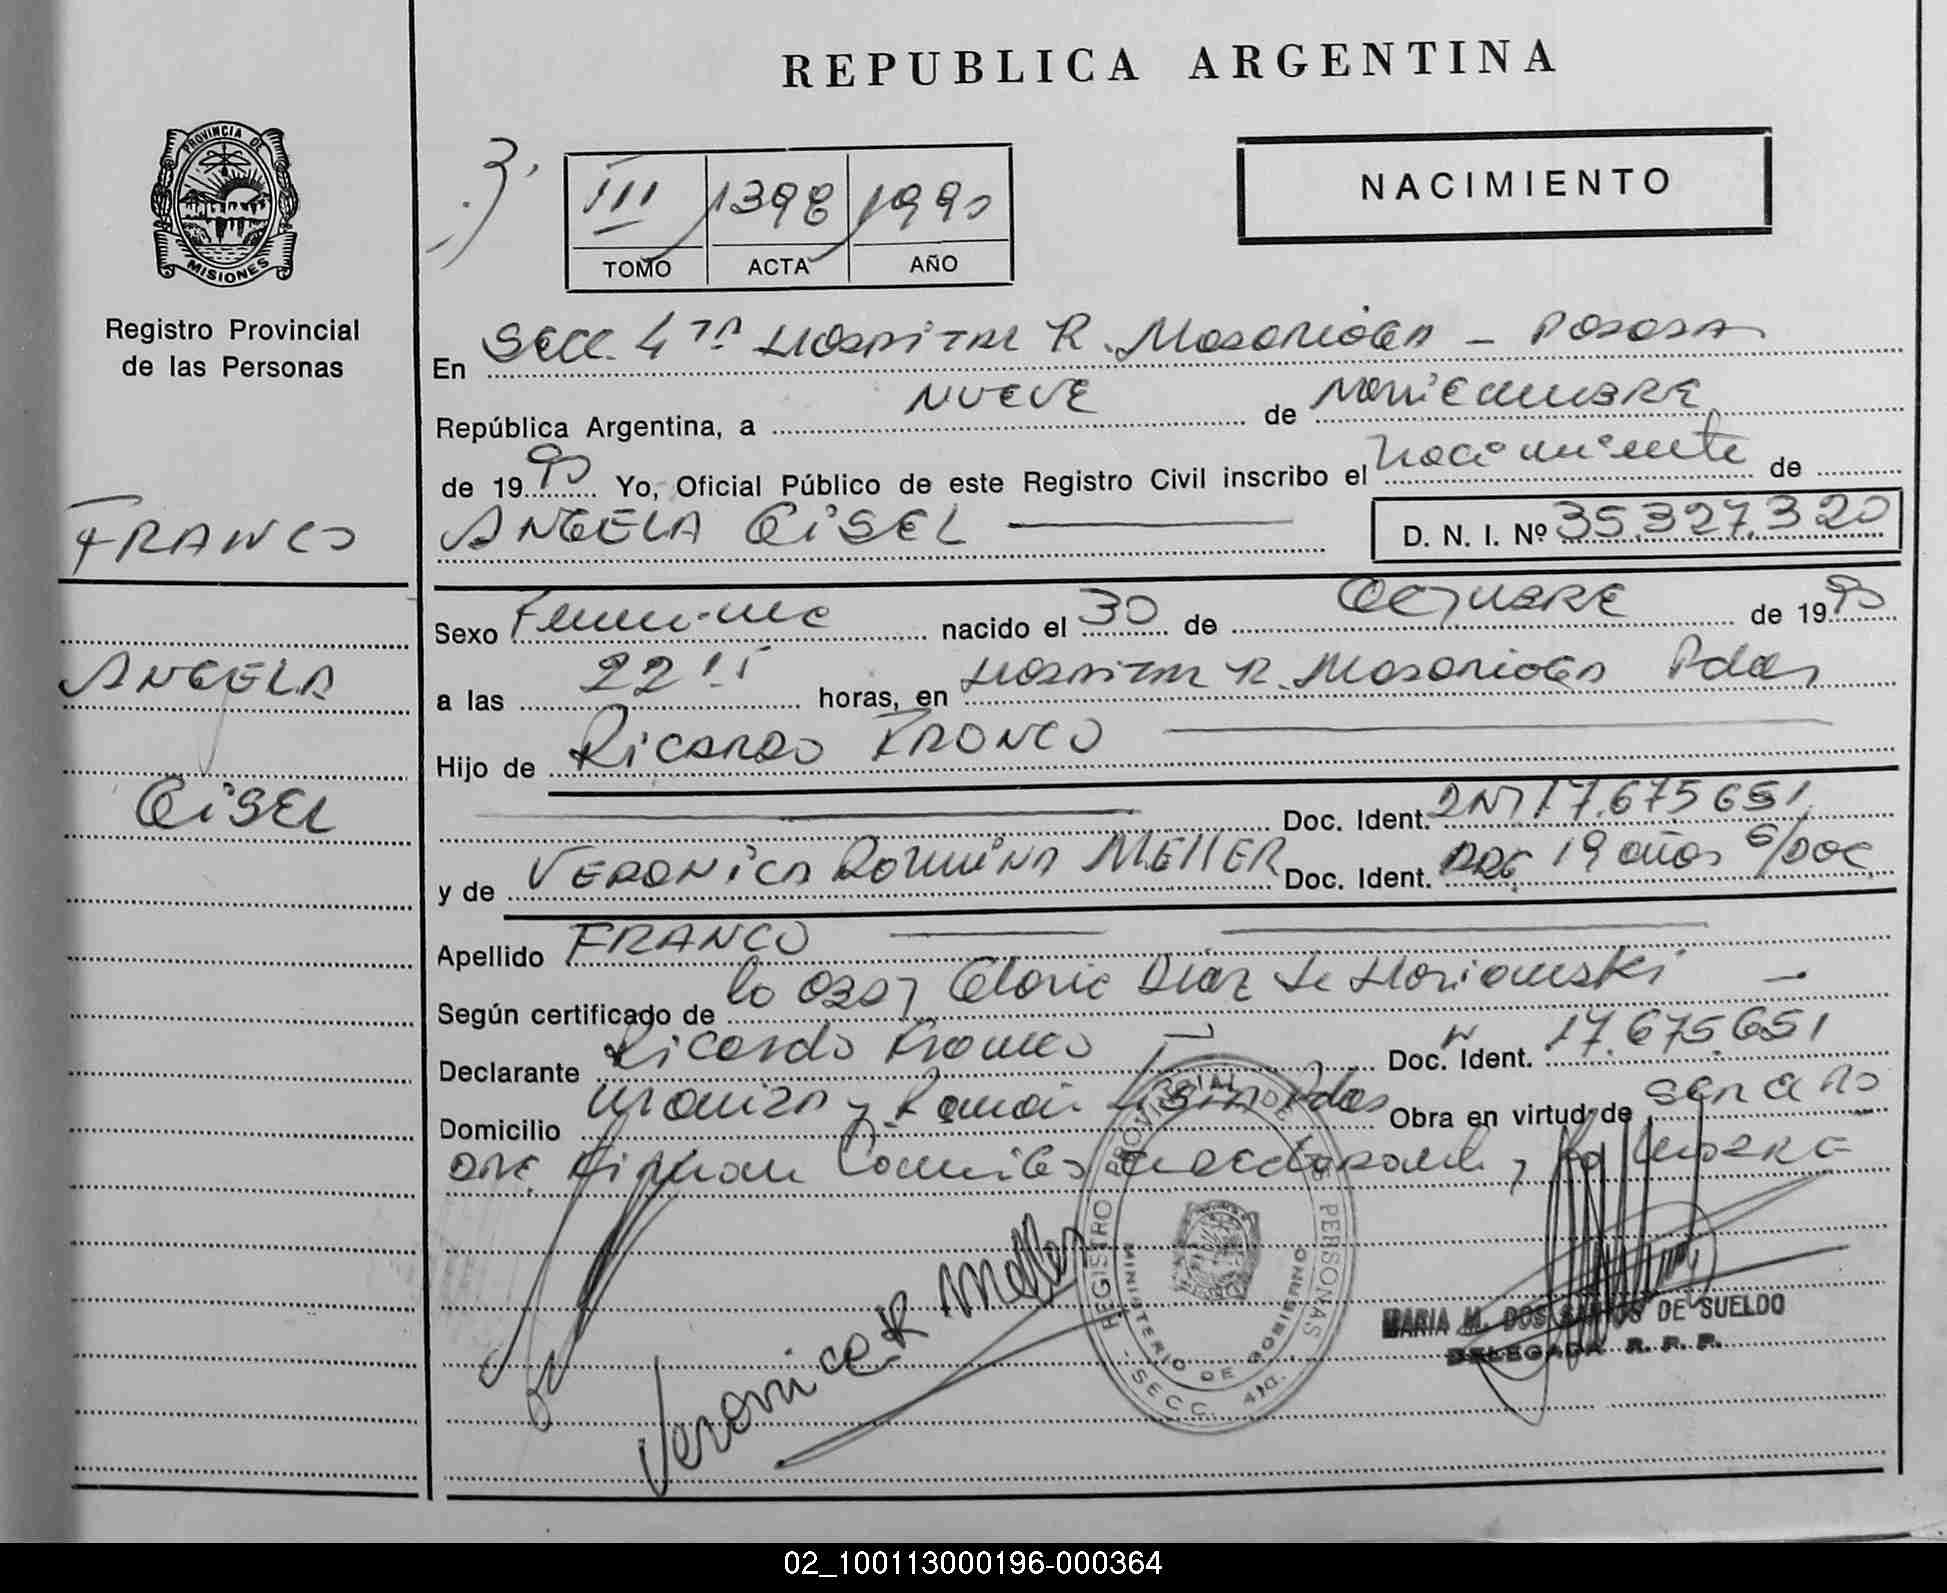 REPUBLICA ARGENTINA
PROVINCIA DE
MISIONES
Registro Provincial
de las Personas
III 1398 1990
TOMO ACTA AÑO
NACIMIENTO
En Secc. 4ta Hospital R. Madariaga - Posadas
República Argentina, a NUEVE de Noviembre
de 1990 Yo, Oficial Público de este Registro Civil inscribo el nacimiento de
ANGELA GISEL D. N. I. Nº 35.327.320
FRANCO
ANGELA
GISEL
Sexo Femenino nacido el 30 de OCTUBRE de 1990
a las 22 horas, en Hospital R. Madariaga Pdas
Hijo de Ricardo FRANCO
Doc. Ident. DNI 17.675651
y de VERONICA Romina MELLER Doc. Ident. ARG. 19 años S/DOC
Apellido FRANCO
Según certificado de la Gloria Diaz de
Declarante Ricardo Franco Doc. Ident. N 17.675.651
Domicilio Urquiza y Ramón Pdas Obra en virtud de ser
ARG. Firman
Veronica R Meller
REGISTRO PROVINCIAL DE LAS PERSONAS
MINISTERIO DE GOBIERNO
- SECC. 4ta. -
MARIA M. DOS SANTOS DE SUELDO
DELEGADA R. P. P.
02_100113000196-000364